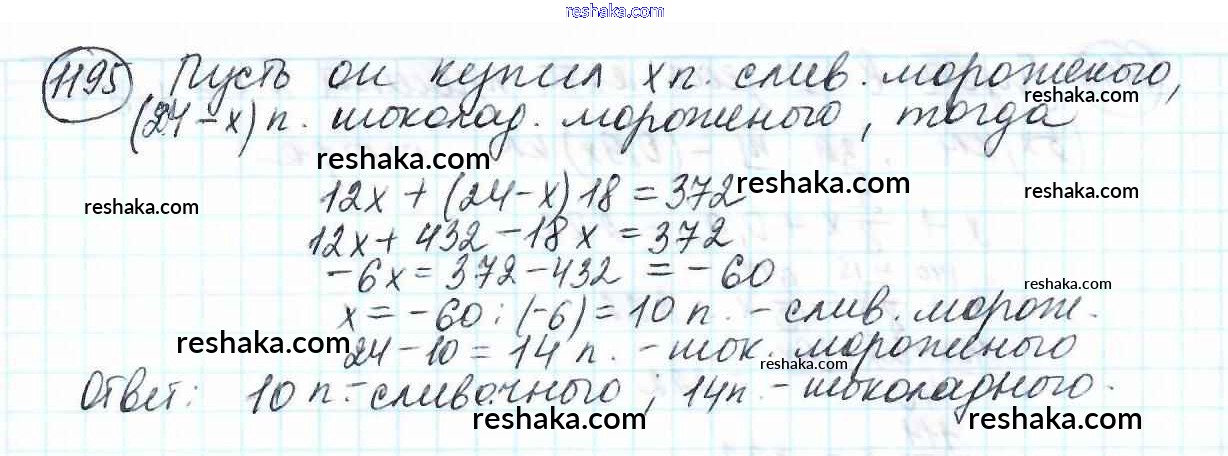 reshaka.com
1195 Пусть он купил x п. слив. мороженого,
reshaka.com
(24-x) п. шоколад. мороженого, тогда
reshaka.com
12x + (24-x) 18 = 372
reshaka.com
reshaka.com
reshaka.com
12x + 432 - 18x = 372
-6x = 372 - 432 = -60
reshaka.com
x = -60 : (-6) = 10 п. - слив. морож.
reshaka.com
24 - 10 = 14 п. - шок. мороженого
reshaka.com
Ответ: 10 п. - сливочного; 14 п. - шоколадного.
reshaka.com
reshaka.com